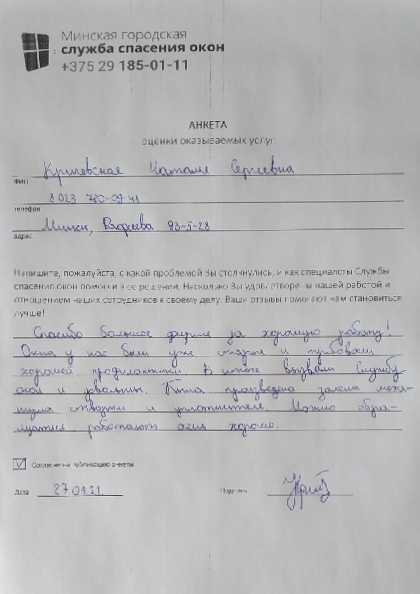 Минская городская
служба спасения окон
+375 29 185-01-11
АНКЕТА
оценки оказываемых услуг
Наталья Сергеевна
ФИО
8 029
телефон
Минск,
адрес
Напишите, пожалуйста, с какой проблемой Вы столкнулись, и как специалисты Службы
спасения окон помогли в ее решении. Насколько Вы удовлетворены нашей работой и
отношением наших сотрудников к своему делу. Ваши отзывы помогают нам становиться
лучше!
Спасибо большое фирме за хорошую работу!
Окна у нас были уже старые и требовали
хорошей профилактики. В итоге вызвали Службу
окон и довольны. Была произведена замена меха-
низма створки и уплотнителей. Можно обра-
щаться работают очень хорошо.
Согласие на публикацию анкеты
Дата 27.01.21
Подпись